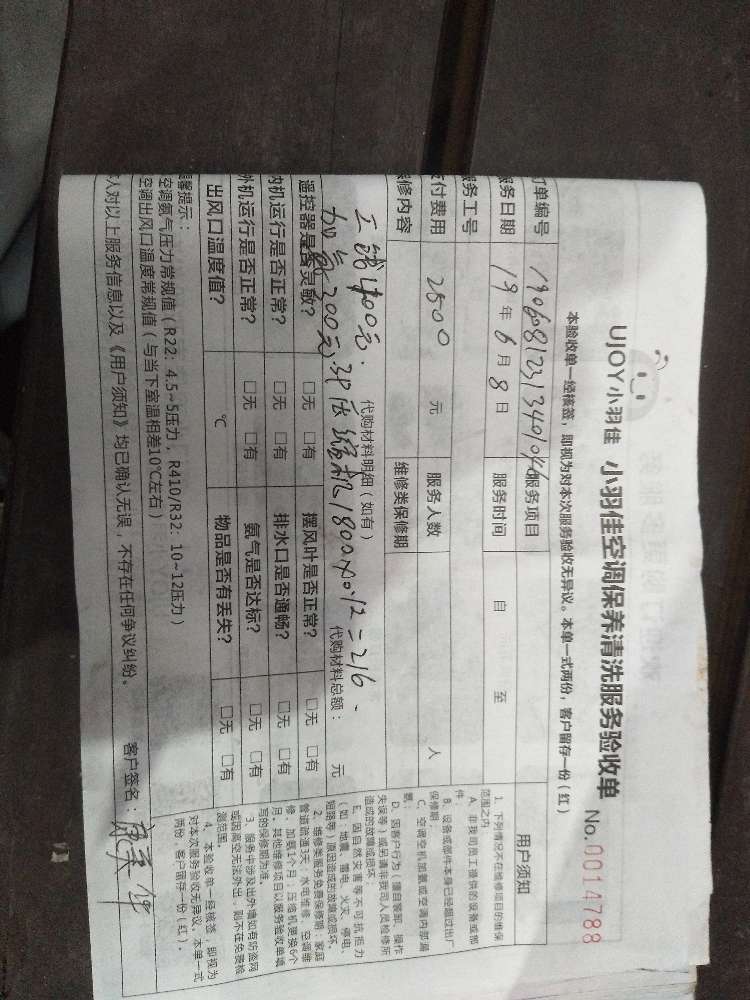 UJOY小羽佳 小羽佳空调保养清洗服务验收单 No.0014788
本验收单一经核签，即视为对本次服务验收无异议。本单一式两份，客户留存一份（红）
订单编号 服务项目
服务日期 19年6月8日 服务时间 自 至
服务工号
支付费用 2500元 服务人数 人
维修内容 维修类保修期
代购材料明细（如有）
工钱400元.
加氟200元.3P压缩机1800×0.12=216.
代购材料总额： 元
遥控器是否灵敏？ □无 □有 摆风叶是否正常？ □无 □有
内机运行是否正常？ □无 □有 排水口是否通畅？ □无 □有
外机运行是否正常？ □无 □有 氨气是否达标？ □无 □有
出风口温度值？ ℃ 物品是否有丢失？ □无 □有
温馨提示：
空调氨气压力常规值（R22：4.5~5压力，R410/R32：10~12压力）
空调出风口温度常规值（与当下室温相差10℃左右）
本人对以上服务信息以及《用户须知》均已确认无误，不存在任何争议纠纷。 客户签名：
用户须知
1、下列情况不在维修项目的维保
范围之内
A、非我司员工提供的设备或部
件
B、设备或部件本身已经超过出厂
保修期；
C、空调空机加氨或空调内部漏
氨；
D、因客户行为（擅自装卸、操作
失误等）或另请非我司人员检修所
造成的故障或损坏；
E、因自然灾害等不可抗拒力
（如：地震、雷电、火灾、停电、
短路等）原因造成的故障或损坏。
2、维修类服务免费保修期：家庭
管道疏通3天；水电维修、空调维
修、加氨1个月；压缩机更换6个
月。其他维修项目以服务验收单填
写的保修期为准。
3、服务中涉及出外墙如有防盗网
或因高空无法外出，则不在免费检
测范围。
4、本验收单一经核签，即视为
对本次服务验收无异议，本单一式
两份，客户留存一份（红）。